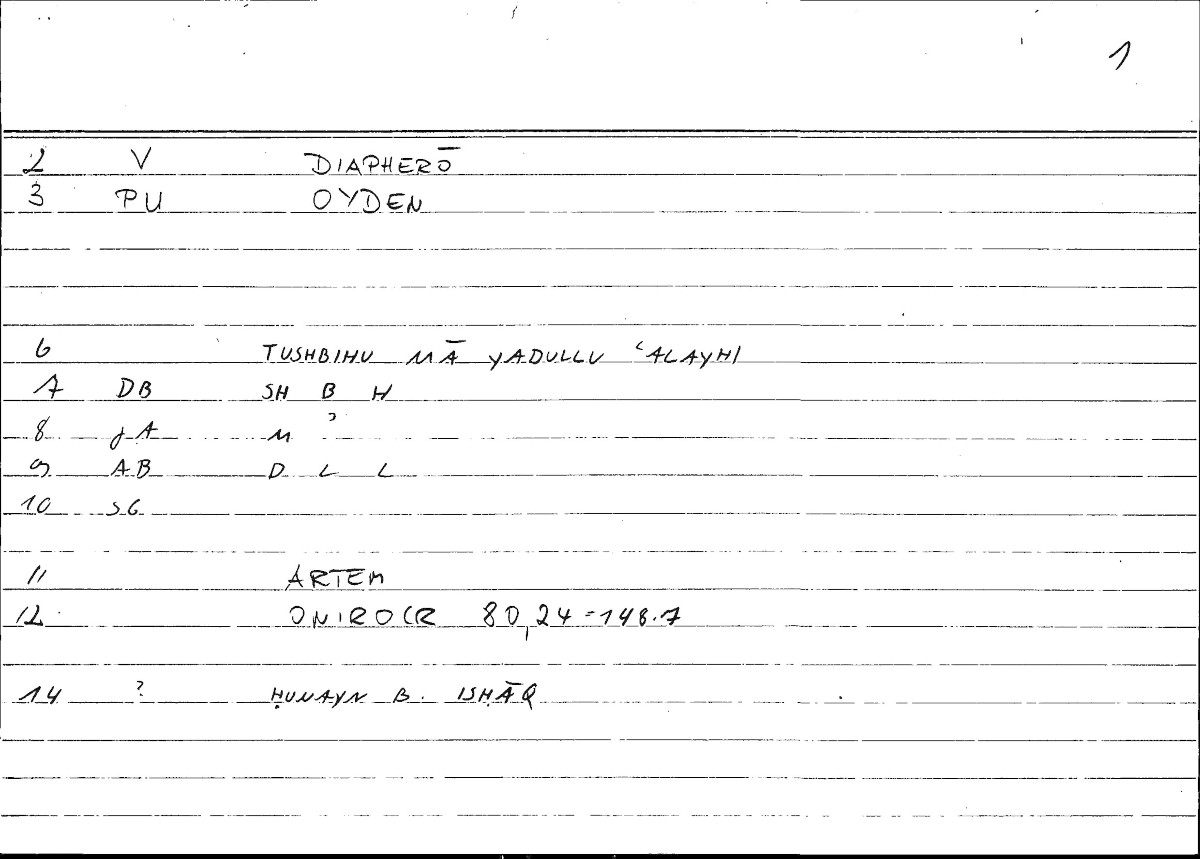 1
2 V DIAPHERŌ
3 PU OYDEN
6 TUSHBIHU MĀ YADULLU ʿALAYHI
7 DB SH B H
8 JA M ʾ
9 AB D L L
10 SG
11 ARTEM
12 ONIROCR 80,24=148.7
14 ? ḤUNAYN B. ISḤĀQ